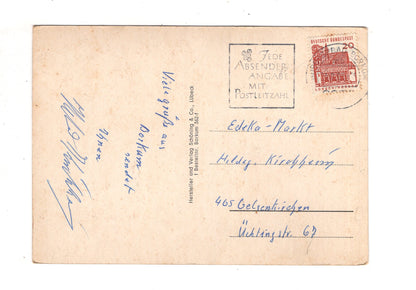 Viele Grüße aus
Borkum
sendet
Ihnen
Hersteller und Verlag Schöning & Co., Lübeck
JEDE
ABSENDER-
ANGABE
MIT
POSTLEITZAHL
DEUTSCHE BUNDESPOST
20
Edeka-Markt
Hildeg. Kirchheim
465 Gelsenkirchen
Üchtingstr. 67